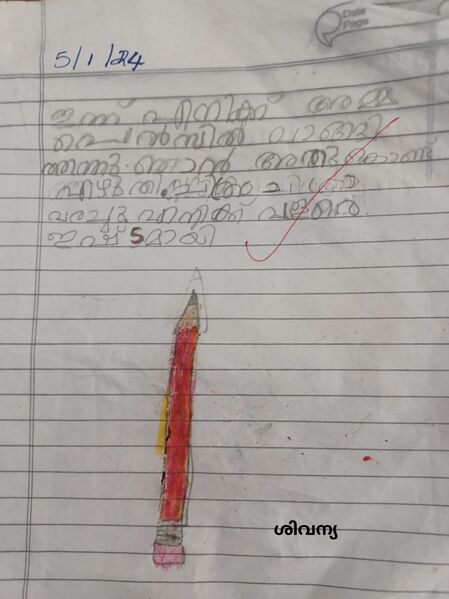 Date
Page
5/1/24
ഇന്ന് എനിക്ക് അമ്മ
പെൻസിൽ വാങ്ങി
ത്തന്നു. ഞാൻ അതുകൊണ്ട്
എഴുതി. ചിത്രം
വരച്ചു എനിക്ക് വളരെ
ഇഷ്ടമായി
ശിവന്യ